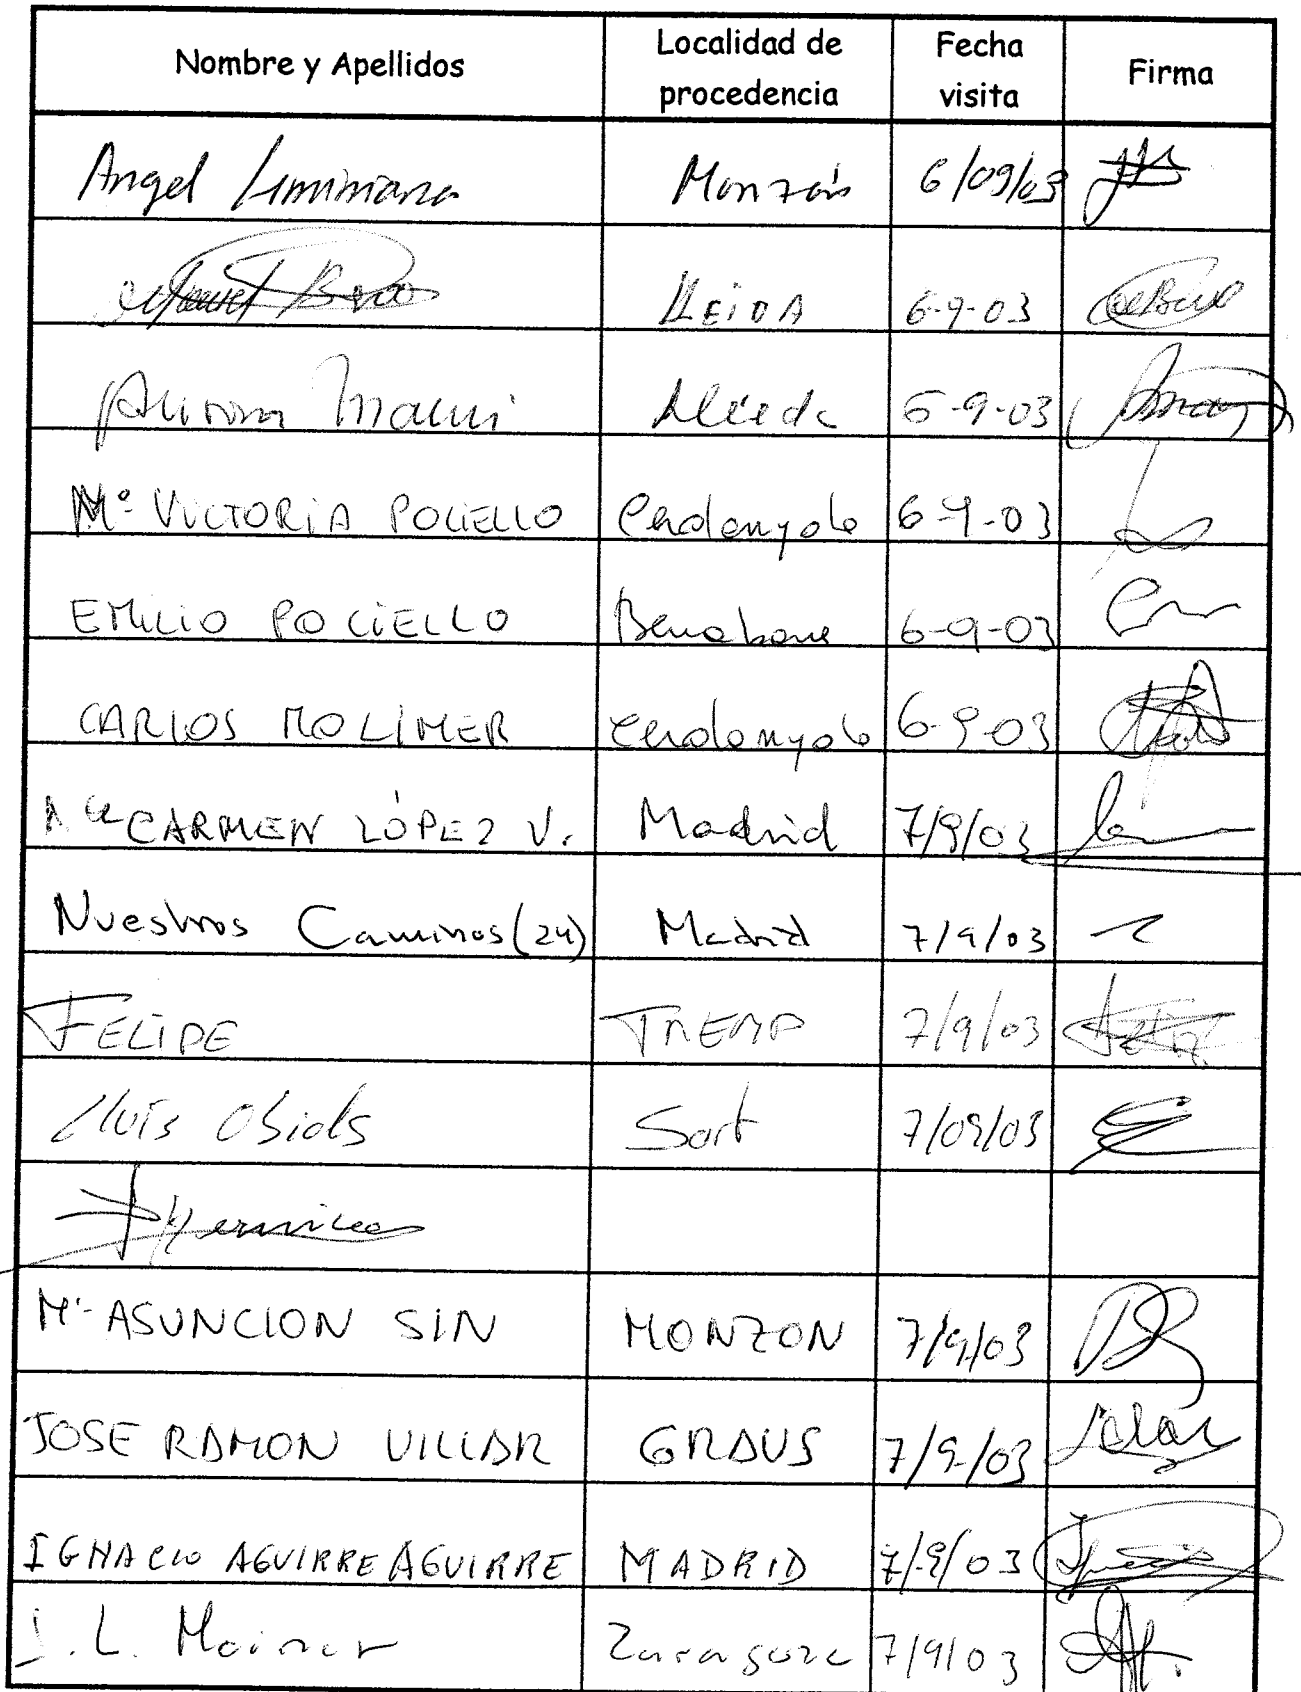 Nombre y Apellidos Localidad de procedencia Fecha visita Firma
Angel Liminiana Monzón 6/09/03
LLEIDA 6-9-03
Lleida 6-9-03
Mª VICTORIA POCIELLO Cerdanyola 6-9-03
EMILIO POCIELLO Benabarre 6-9-03
CARLOS MOLINER Cerdanyola 6-9-03
Mª CARMEN LÓPEZ V. Madrid 7/9/03
Nuestros Caminos (24) Madrid 7/9/03
FELIPE TREMP 7/9/03
Lluís Obiols Sort 7/09/03
Mª ASUNCION SIN MONZON 7/9/03
JOSE RAMON VILLAR GRAUS 7/9/03
IGNACIO AGUIRRE AGUIRRE MADRID 7/9/03
J.L. Mainer Zaragoza 7/9/03